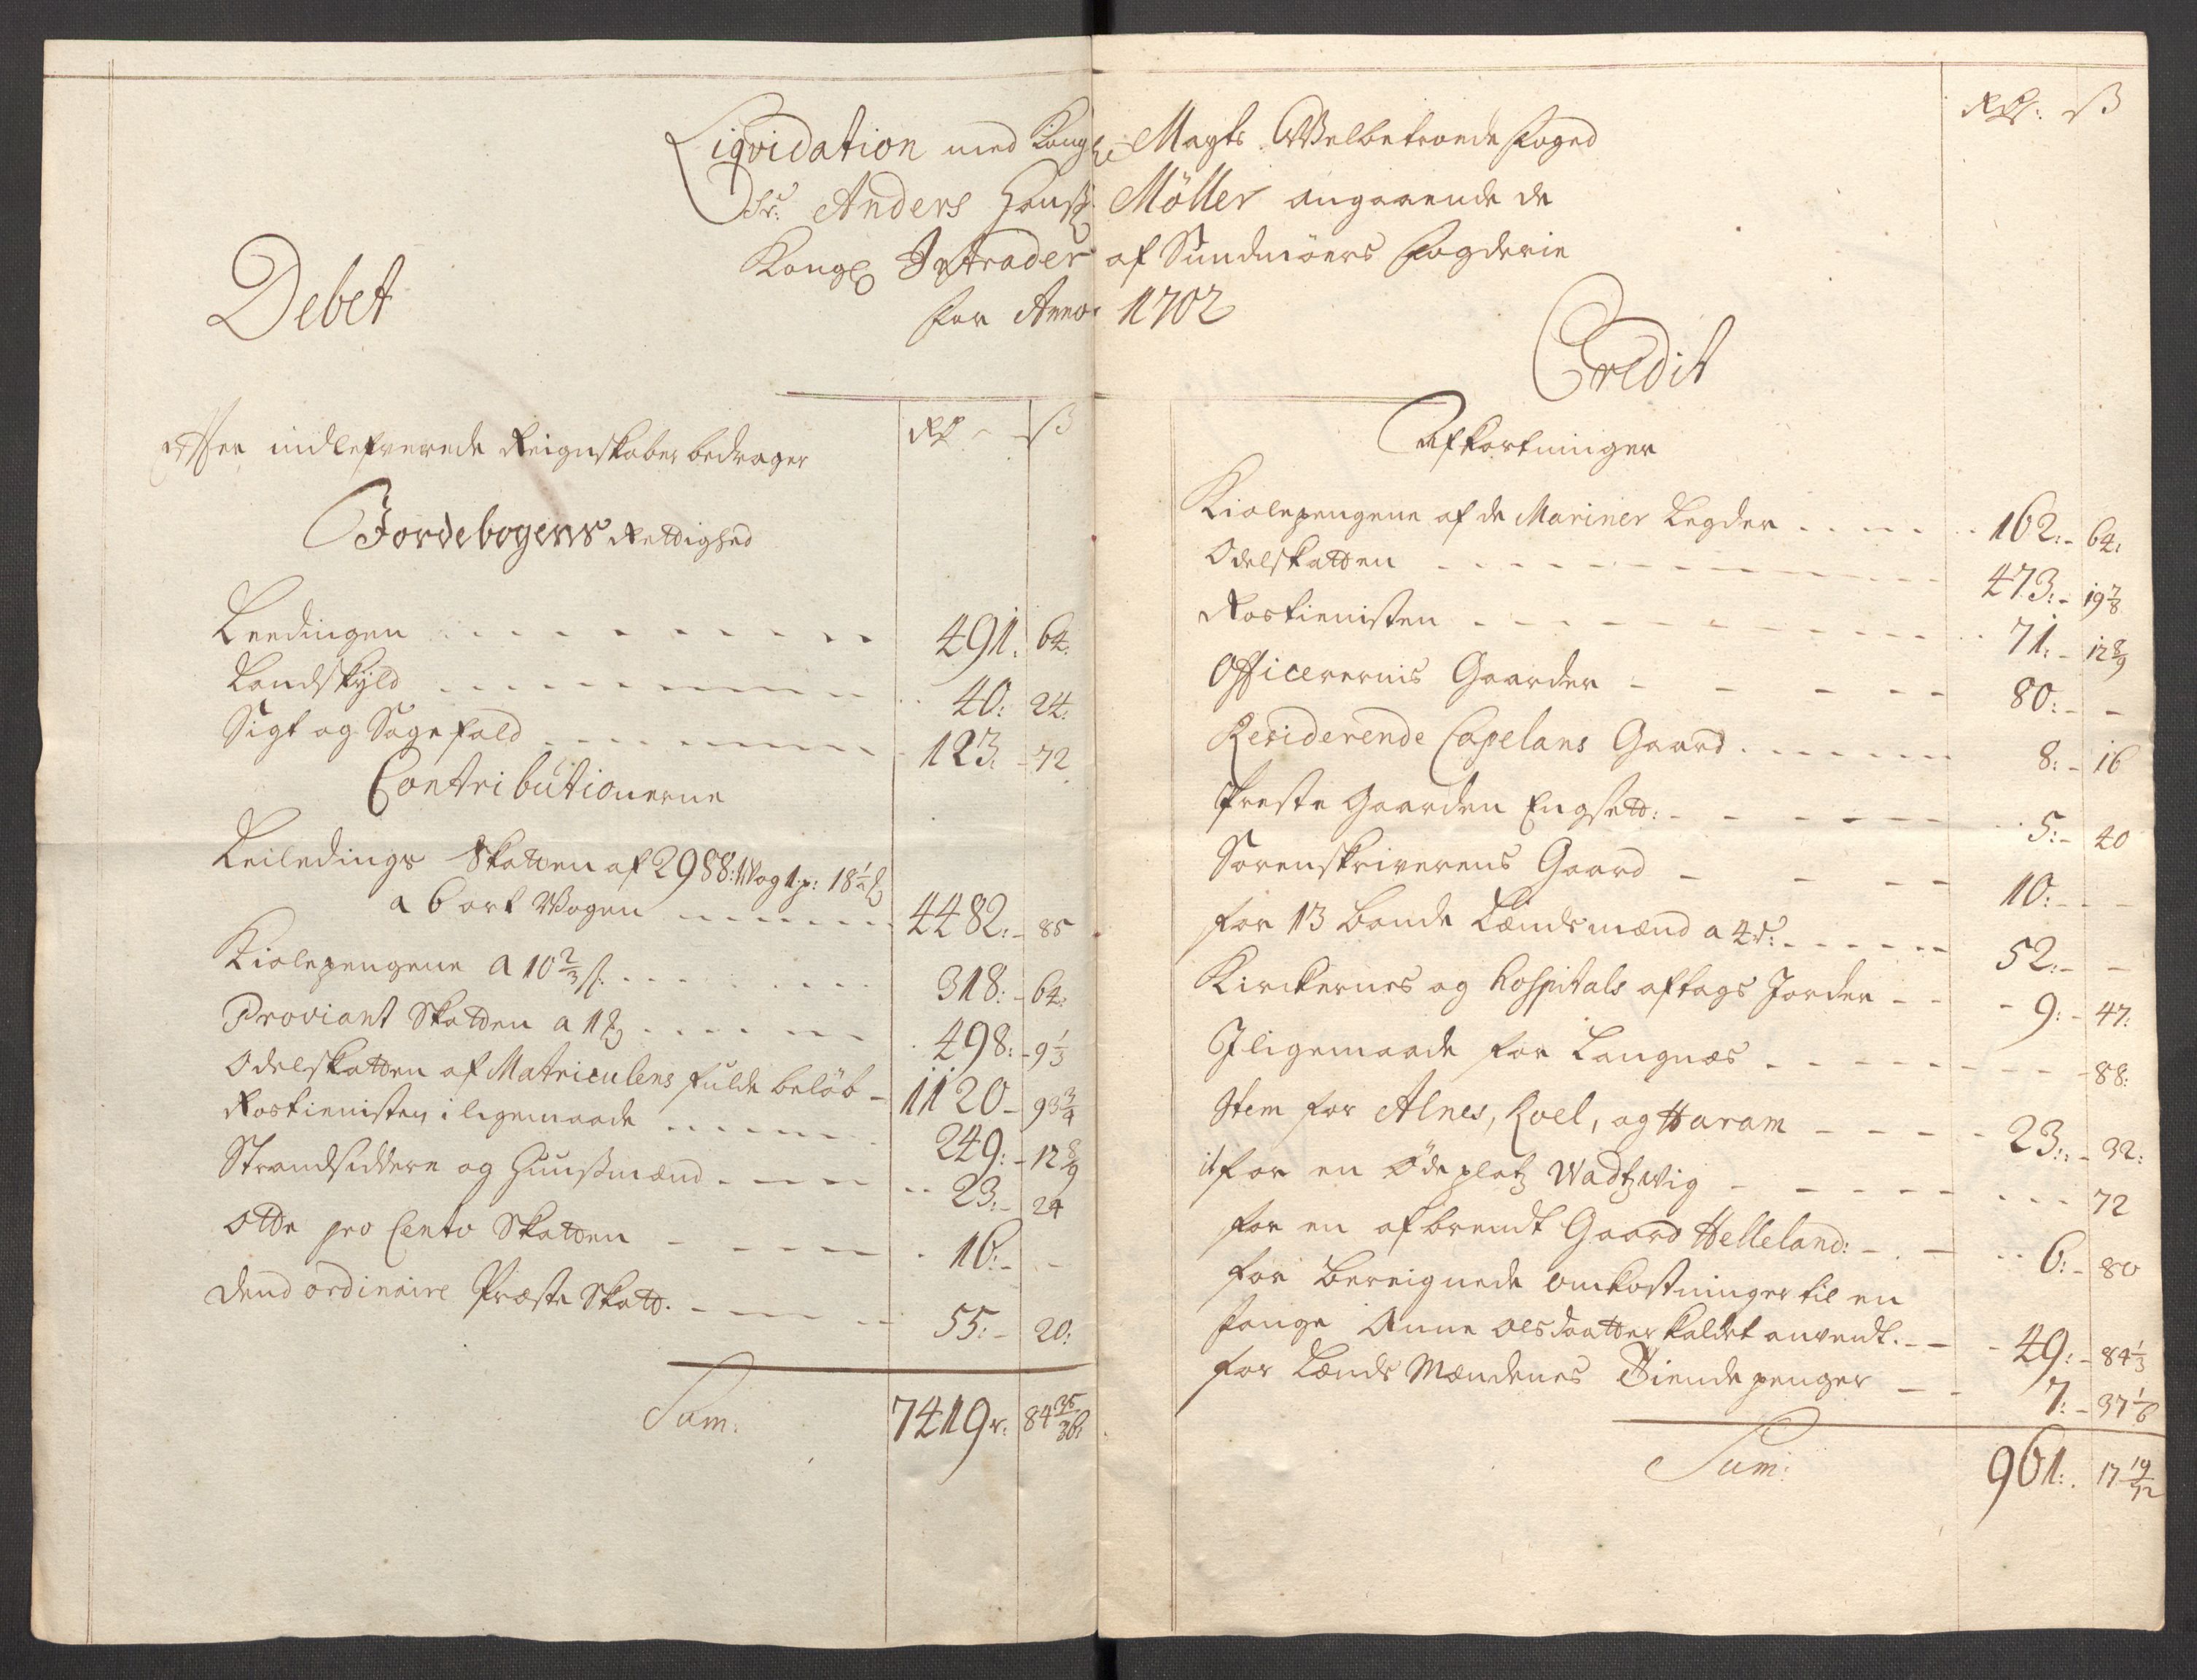 Liqvidation med Kongl: Mayts Welbetroede foged
Sr. Anders Hanß: Möller angaaende de
Kongl: Intrader af Sundmöers fogderie
for Anno 1702
Debet
Rd ß
Efter indlefverede Reignskaber bedrager
Jordebogens Rettighed
Leedingen 491: 64:
Landskyld 40: 24:
Sigt og Sagefald 123: 72
Contributionerne
Leilendings Skatten af 2988: Wog 1 p: 18 1/2 ℔
a 6 ort Wogen 4482: 85
Kiolepengene a 10 2/3 ß: 318: 64:
Proviant Skatten a 1 ℔ 498: 9 1/3
Odelskatten af Matriculens fulde beløb 1120 93 3/4
Rostienisten i ligemaade 249: 12 8/9
Strandsiddere og Huußmænd 23: 24
Otte pro Cento Skatten 16: -
Dend ordinaire Præste Skatt. 55: 20:
Sum: 7419 r: 84 35/36:
Rdr: ß
Credit
Afkortninger
Kiolepengene af de Mariner Legder 162: 64:
Odelskatten 473: 19 7/8
Rostienisten 71: 12 8/9
Officerernis Gaarder 80: -
Residerende Capelans Gaard 8: 16
Preste Gaarden Engsett: 5: 40
Sorenskriverens Gaard 10: -
for 13 bonde Lændsmænd a 4 r: 52: -
Kirckernes og Hospitals aftags Jorder 9: 47:
Iligemaade for Langnæs 88:
Item for Alnes, Roel, og Haram 23: 32:
it for en Öde platz Wadtzwig 72
for en afbrendt Gaard Helleland: 6: 80
for bereignede omkostninger til en
fange Anne Olsdaatter kaldet anvendt. 49: 84 1/3
for Lænds Mændenes Tiende penger 7: 37 1/6
Sum: 961: 17 19/72